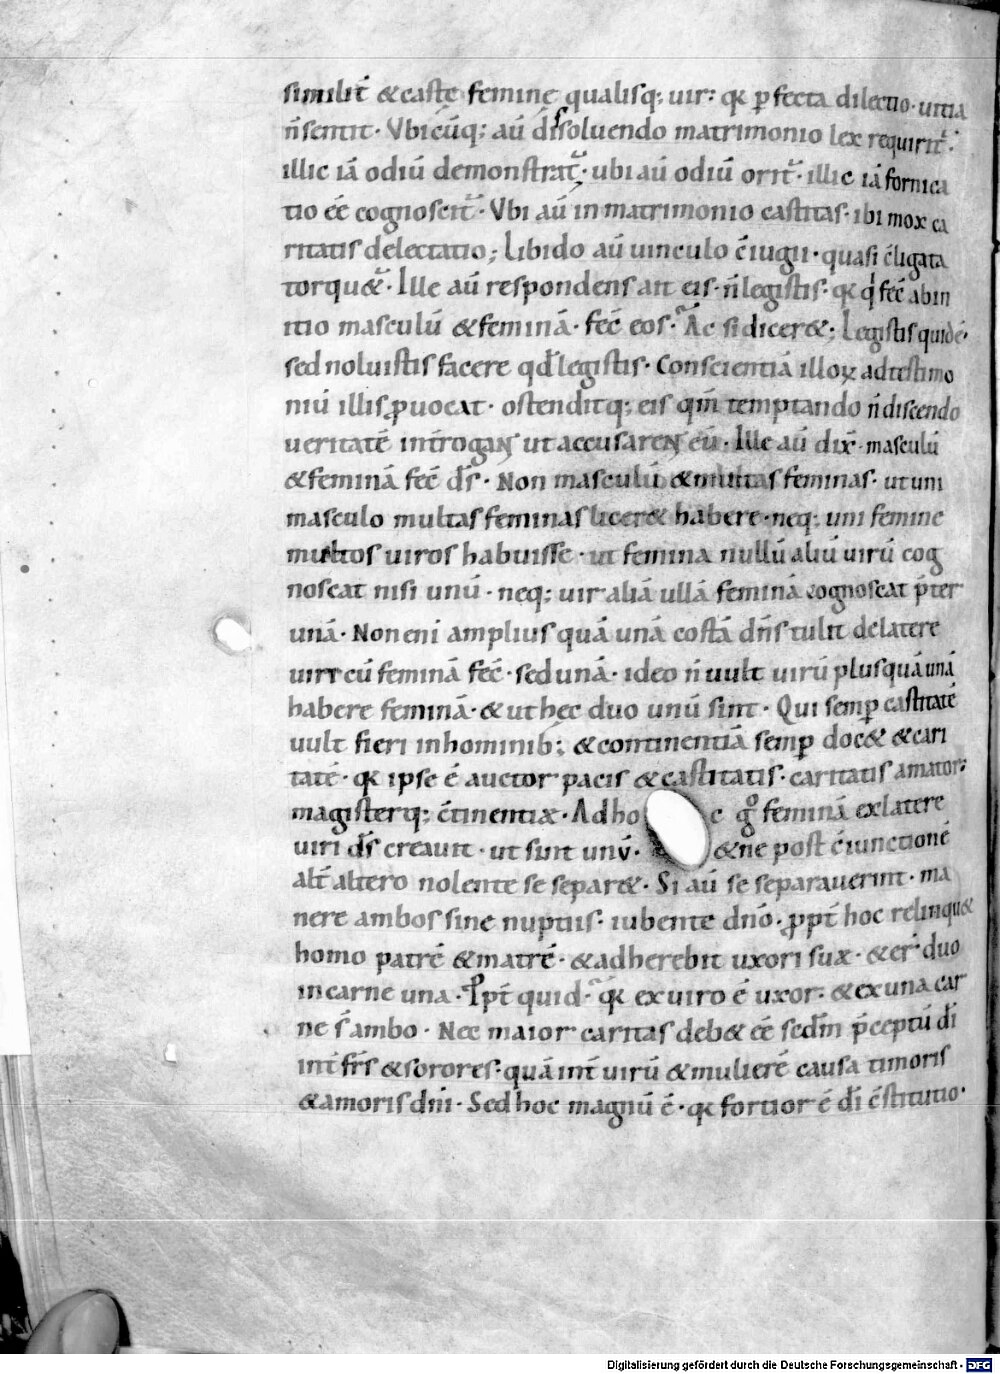 similit̄ & castę feminę qualisq; uir: qꝛ ꝑfecta dilectio · uitia
n̄ sentit · Vbicūq; aū dissoluendo matrimonio lex requirit᷑ ·
illic iā odiū demonstrat᷑ · ubi aū odiū orit᷑ · illic iā fornica
tio eē cognoscit᷑ · Vbi aū in matrimonio castitas · ibi mox ca
ritatis delectatio; Libido aū uinculo c̄iugii · quasi c̄ligata
torqu&᷑ · Ille aū respondens ait eis · n̄ legistis · qꝛ qͥ fec̄ ab in
itio masculū & feminā · fec̄ eos · Ac si dicer&; Legistis quidē ·
sed noluistis facere qd̄ legistis · Conscientiā illoꝝ ad testimo
niū illis ꝓuocat · ostenditq; eis qm̄ temptando n̄ discendo
ueritatē int̄rogant ut accusarent eū · Ille aū dix̄ · masculū
& feminā fec̄ ds̄ · Non masculū & multas feminas · ut uni
masculo multas feminas licer& habere · neq; uni feminę
multos uiros habuisse · ut femina nullū aliū uirū cog
noscat nisi unū · neq; uir aliā ullā feminā cognoscat p̄ter
unā · Non eni amplius quā unā costā dn̄s tulit de latere
uiri cū feminā fec̄ · sed unā · ideo n̄ uult uirū plus quā unā
habere feminā · & ut hęc duo unū sint · Qui semꝑ castitatē
uult fieri in hominib; & continentiā semꝑ doc& & cari
tatē · qꝛ ipse ē auctor pacis & castitatis · caritatis amator ·
magisterq; c̄tinentiæ · Ad ho c gͦ feminā ex latere
uiri ds̄ creauit · ut sint unū · & ne post c̄iunctionē
alt̄ altero nolente se separ& · Si aū se separauerint · ma
nere ambos sine nuptiis · iubente dn̄o · ꝓpt̄ hoc relinqu&
homo patrē & matrē · & adherebit uxori suæ · & er̄ duo
in carne una · Ꝓpt̄ quid · qꝛ ex uiro ē uxor · & ex una car
ne s̄ ambo · Nec maior caritas deb& eē sedm̄ p̄ceptū dī
int̄ frs̄ & sorores · quā int̄ uirū & mulierē causa timoris
& amoris dn̄i · Sed hoc magnū ē · qꝛ fortior ē dī c̄stitutio ·
Digitalisierung gefördert durch die Deutsche Forschungsgemeinschaft - DFG